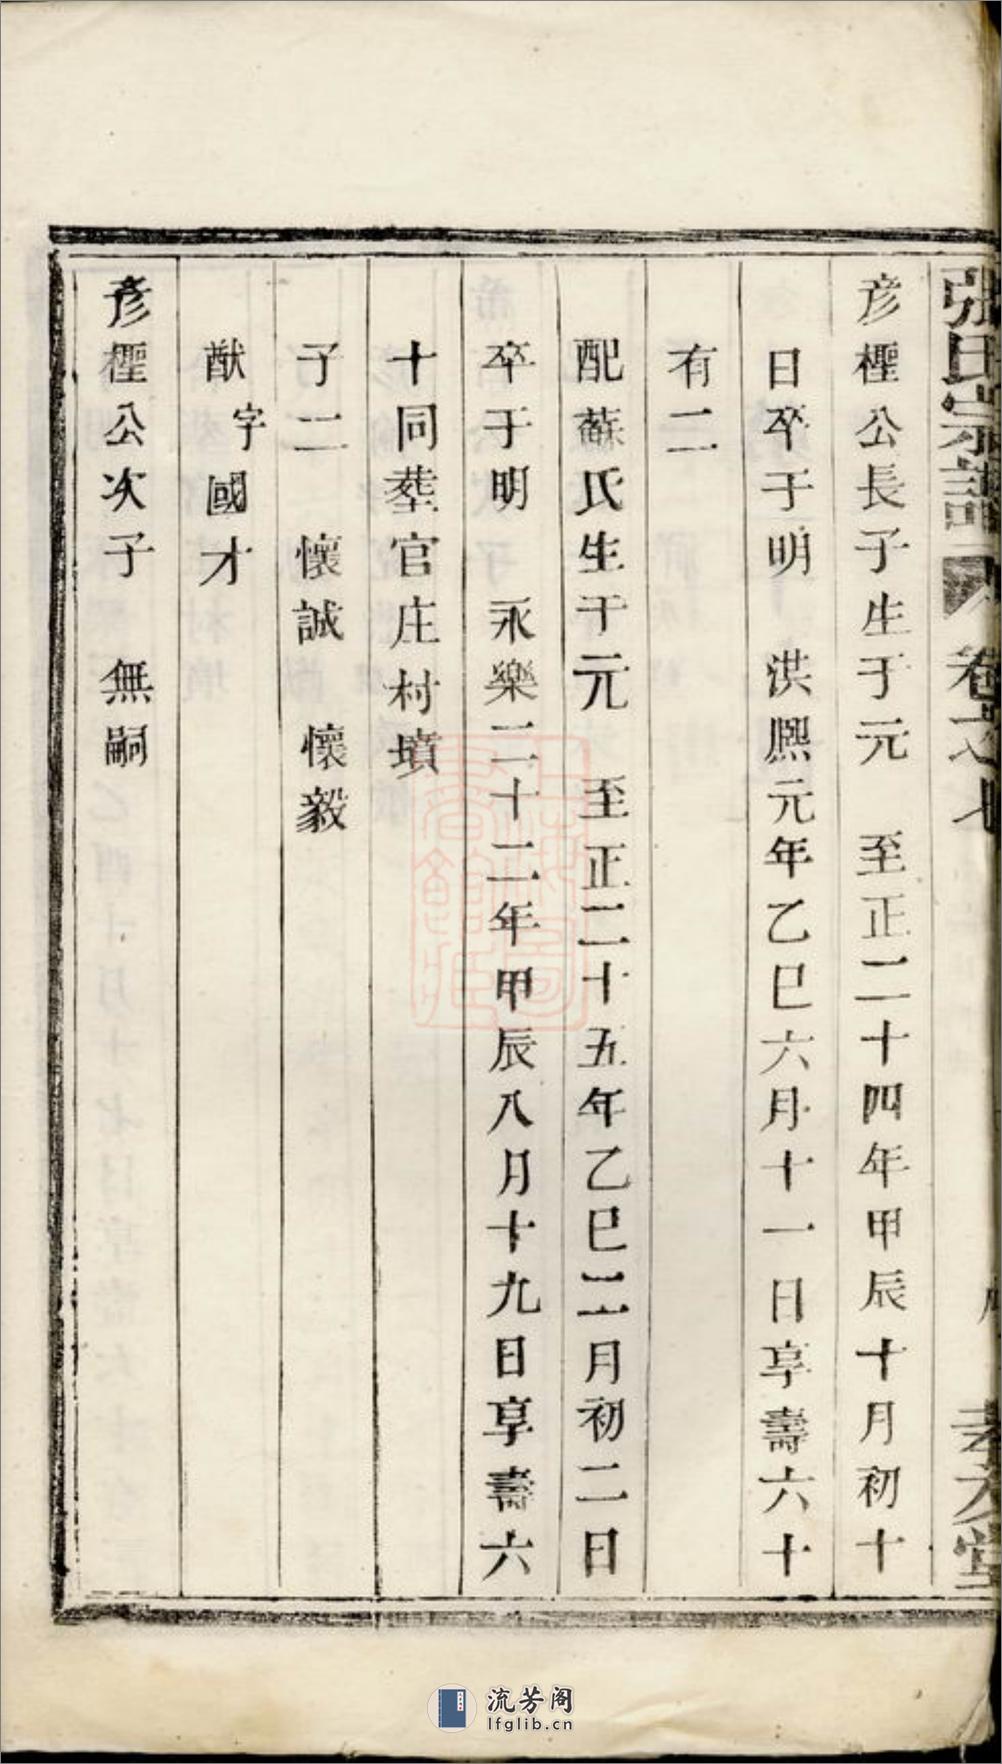 張氏宗譜 卷之七
孝友堂
彦檉公長子生于元 至正二十四年甲辰十月初十
日卒于明 洪熙元年乙巳六月十一日享壽六十
有二
配蘇氏生于元 至正二十五年乙巳二月初二日
卒于明 永樂二十二年甲辰八月十九日享壽六
十同葬官庄村墳
子二 懷誠 懷毅
猷 字國才
彦檉公次子 無嗣
流芳阁
lfglib.cn